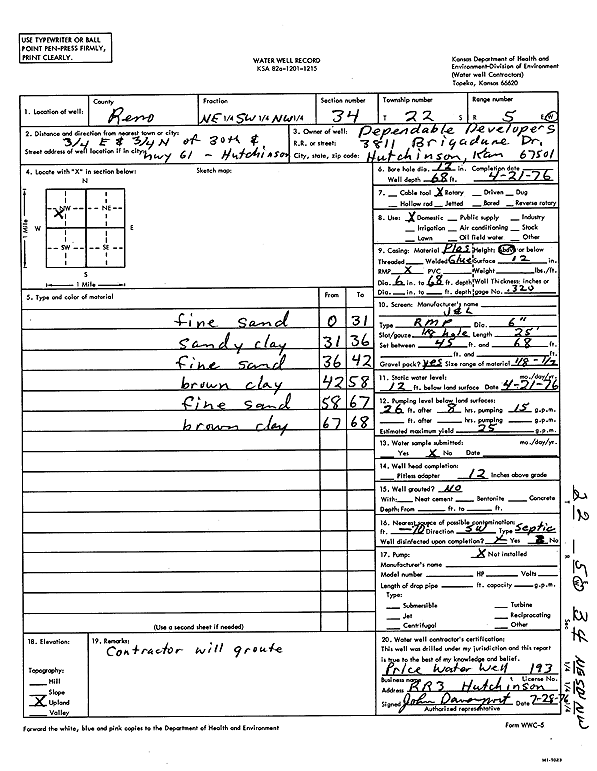 USE TYPEWRITER OR BALL
POINT PEN-PRESS FIRMLY,
PRINT CLEARLY.
WATER WELL RECORD
KSA 82a-1201-1215
Kansas Department of Health and
Environment-Division of Environment
(Water well Contractors)
Topeka, Kansas 66620
1. Location of well:
County
Reno
Fraction
NE 1/4 SW 1/4 NW 1/4
Section number
34
Township number
T 22 S
Range number
R 5 E/W
2. Distance and direction from nearest town or city:
3/4 E & 3/4 N of 30th &
Street address of well location if in city:
hwy 61 - Hutchinson
3. Owner of well: Dependable Developers
R.R. or street: 3811 Brigadune Dr.
City, state, zip code: Hutchinson, Kan 67501
4. Locate with "X" in section below:
Sketch map:
N
NW X NE
W E
SW SE
S
1 Mile
1 Mile
5. Type and color of material From To
fine sand 0 31
Sandy clay 31 36
fine sand 36 42
brown clay 42 58
fine sand 58 67
brown clay 67 68
(Use a second sheet if needed)
6. Bore hole dia. 12 in. Completion date
Well depth 68 ft. 4-21-76
7. Cable tool X Rotary Driven Dug
Hollow rod Jetted Bored Reverse rotary
8. Use: X Domestic Public supply Industry
Irrigation Air conditioning Stock
Lawn Oil field water Other
9. Casing: Material Plas Height: Above or below
Threaded Welded Glue Surface 12 in.
RMP X PVC Weight lbs./ft.
Dia. 6 in. to 68 ft. depth Wall Thickness: inches or
Dia. in. to ft. depth gage No. .320
10. Screen: Manufacturer's name
J&L
Type RMP Dia. 6"
Slot/gauze 1/8 hole Length 25'
Set between 45 ft. and 68 ft.
ft. and ft.
Gravel pack? yes Size range of material 1/8 - 1/2
11. Static water level: mo./day/yr.
12 ft. below land surface Date 4-21-76
12. Pumping level below land surfaces:
26 ft. after 8 hrs. pumping 15 g.p.m.
ft. after hrs. pumping g.p.m.
Estimated maximum yield 25 g.p.m.
13. Water sample submitted: mo./day/yr.
Yes X No Date
14. Well head completion:
Pitless adapter 12 Inches above grade
15. Well grouted? NO
With: Neat cement Bentonite Concrete
Depth: From ft. to ft.
16. Nearest source of possible contamination:
ft. 70 Direction SW Type Septic
Well disinfected upon completion? X Yes No
17. Pump: X Not installed
Manufacturer's name
Model number HP Volts
Length of drop pipe ft. capacity g.p.m.
Type:
Submersible Turbine
Jet Reciprocating
Centrifugal Other
18. Elevation:
Topography:
Hill
Slope
X Upland
Valley
19. Remarks:
Contractor will groute
20. Water well contractor's certification:
This well was drilled under my jurisdiction and this report
is true to the best of my knowledge and belief.
Price Water Well 193
Business name License No.
Address RR3 Hutchinson
Signed John Davenport Date 7-28-76
Authorized representative
Forward the white, blue and pink copies to the Department of Health and Environment
Form WWC-5
T 22 R 5 W Sec 34 NE SW NW
1/4 1/4 1/4